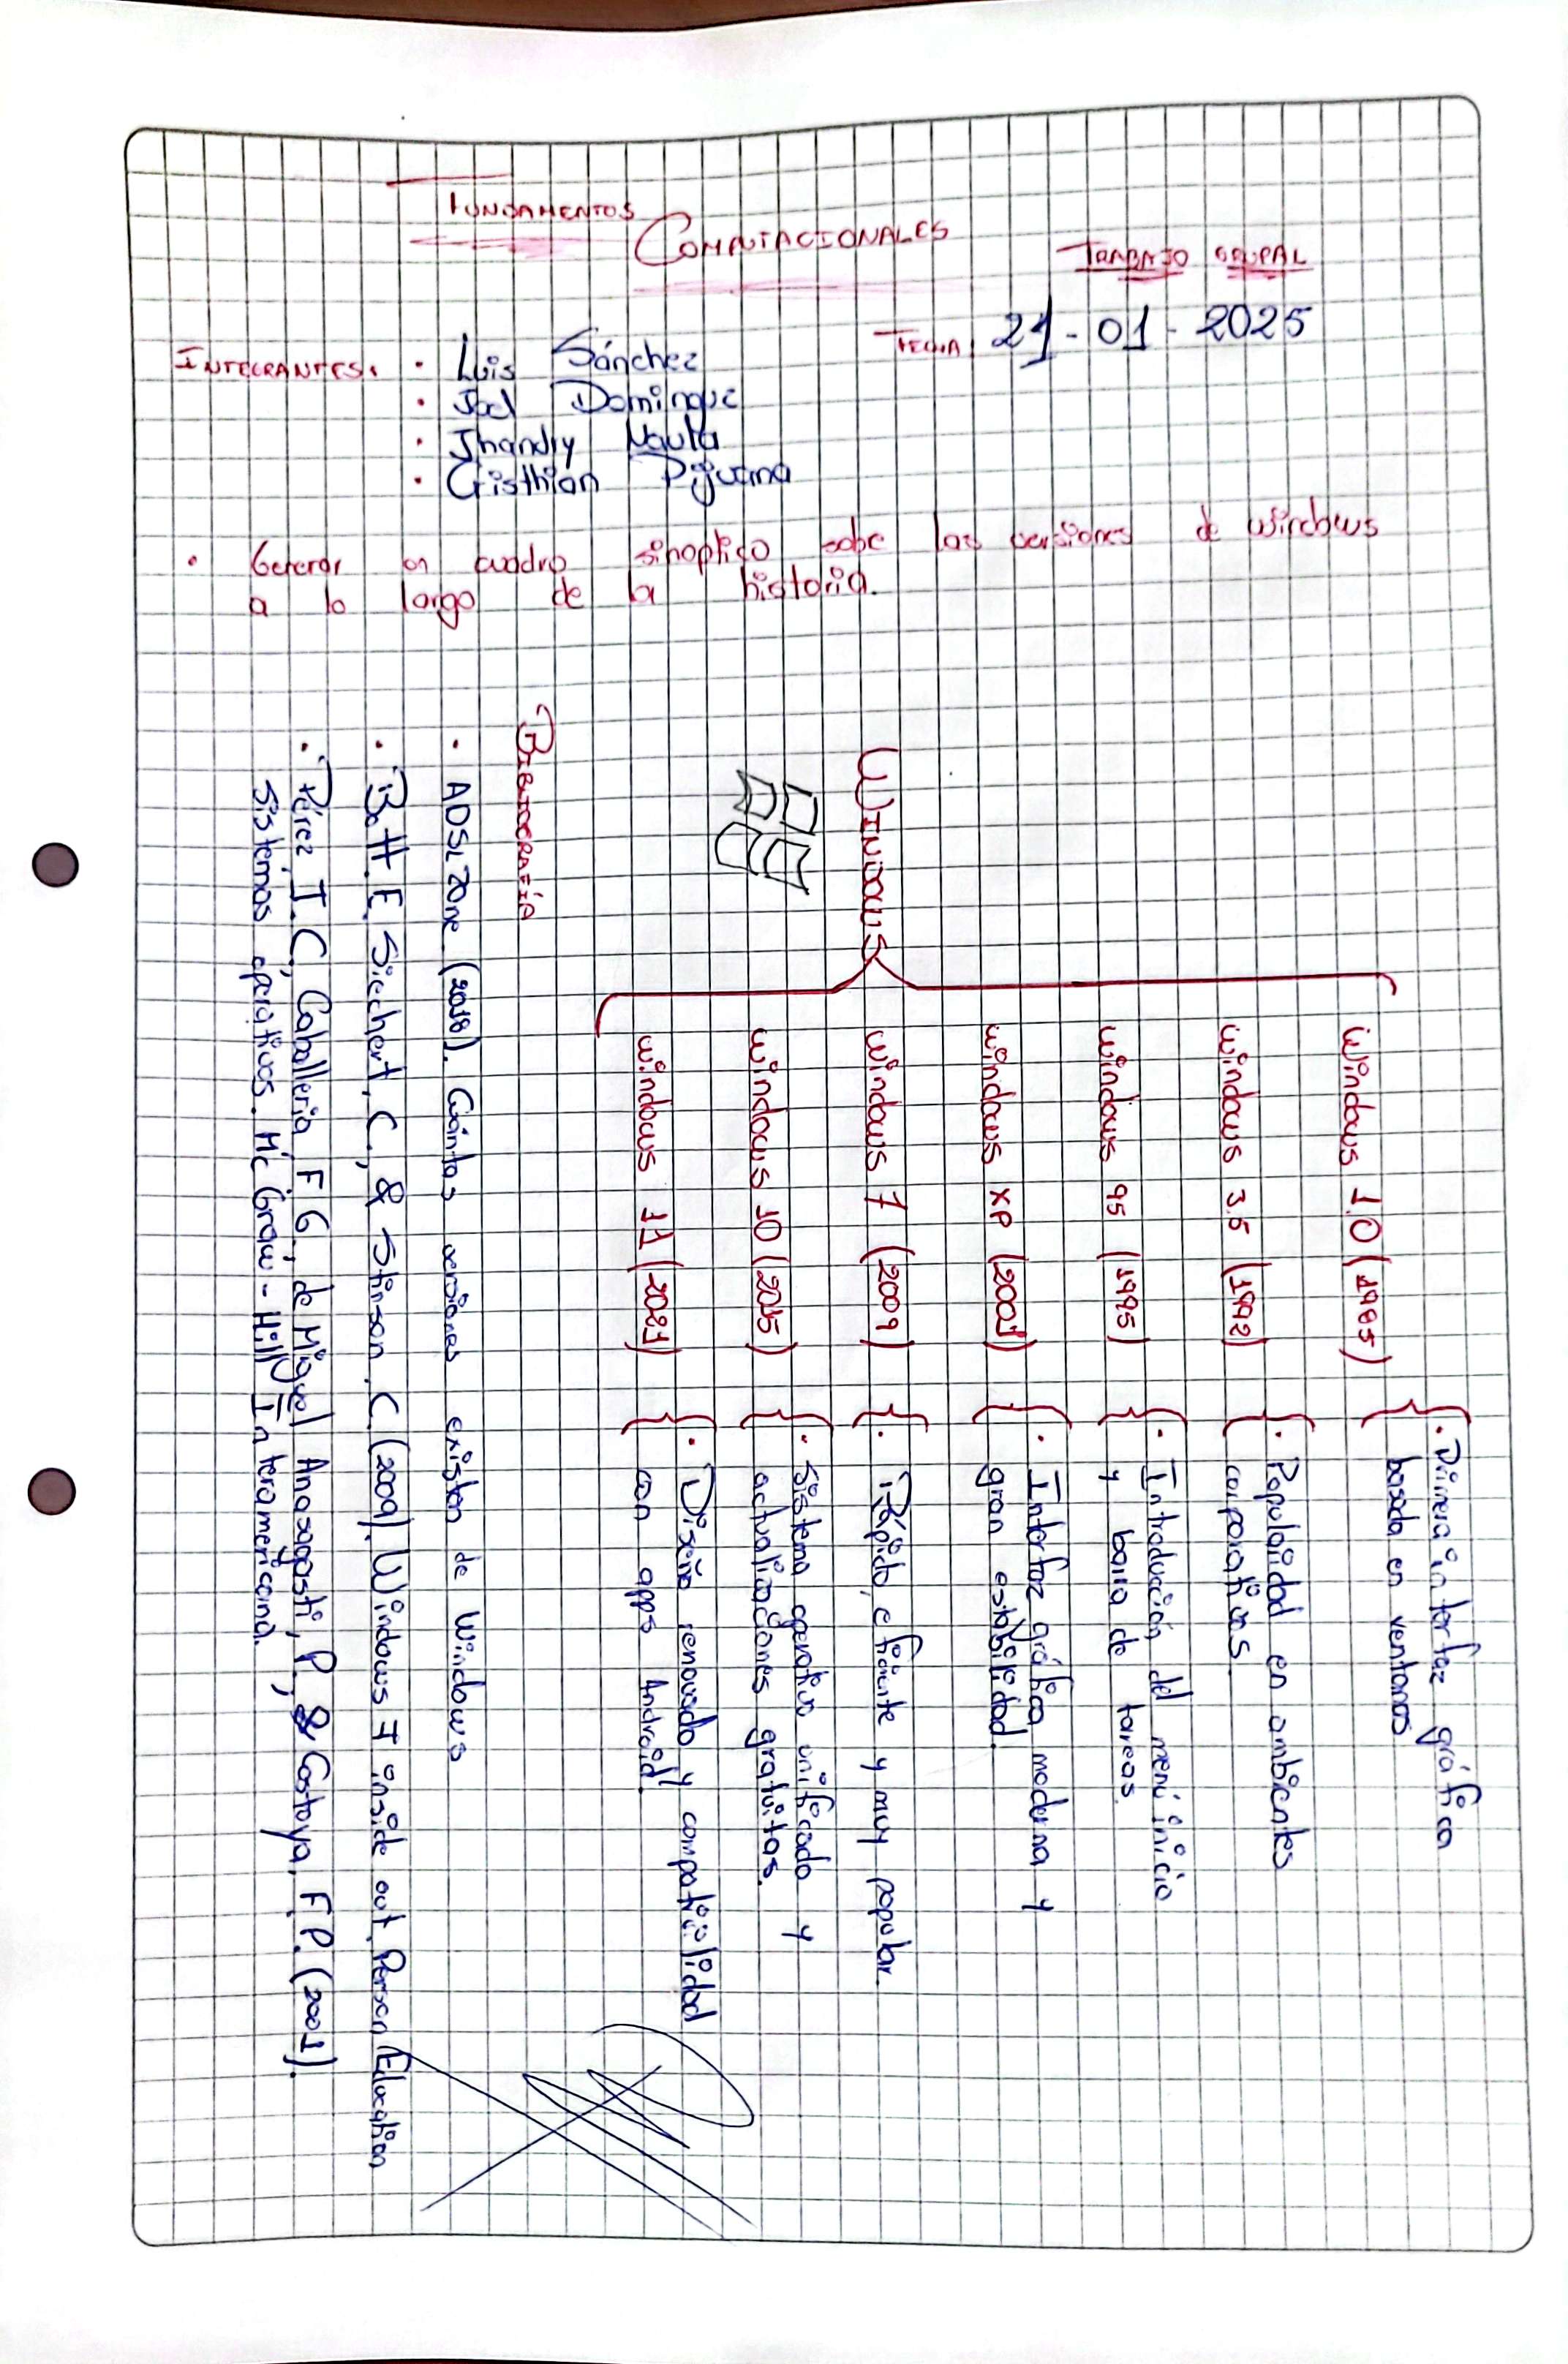 FUNDAMENTOS
COMPUTACIONALES
TRABAJO GRUPAL
FECHA: 21-01-2025
INTEGRANTES:
• Luis Sánchez
• Joel Domingue
• Jhandry Naula
• Cristhian Pijuana
• Generar un cuadro sinoptico sobe las versiones de windows
a lo largo de la historia.
WINDOWS
Windows 1.0 (1985)
• Primera interfaz gráfica
basada en ventanas
Windows 3.5 (1992)
• Popularidad en ambientes
corporativos.
Windows 95 (1995)
• Introducción del menú inicio
y barra de tareas.
Windows XP (2001)
• Interfaz gráfica moderna y
gran estabilidad.
Windows 7 (2009)
• Rápido, eficiente y muy popular.
Windows 10 (2015)
• Sistema operativo unificado y
actualizaciones gratuitas.
Windows 11 (2021)
• Diseño renovado y compatibilidad
con apps Android.
BIBLIOGRAFÍA
• ADSLZone (2018). Cuántas versiones existen de Windows
• Bott. E, Siechert, C., & Stinson, C. (2009). Windows 7 inside out. Person Education
• Pérez, J. C., Caballería, F G., de Miguel Anasagasti, P., & Costoya, F.P. (2001).
Sistemas operativos. Mc Graw-Hill Interamericana.